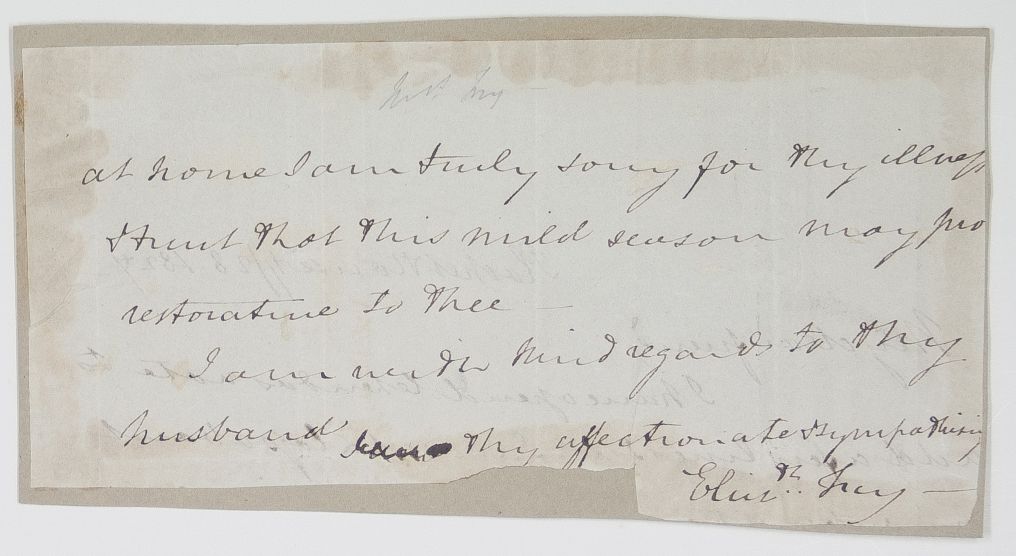 Mrs Fry
at home I am truly sorry for thy illness
& trust that this mild season may pro
restorative to thee —
I am with kind regards to thy
husband thy affectionate & sympathising
Elizth. Fry —